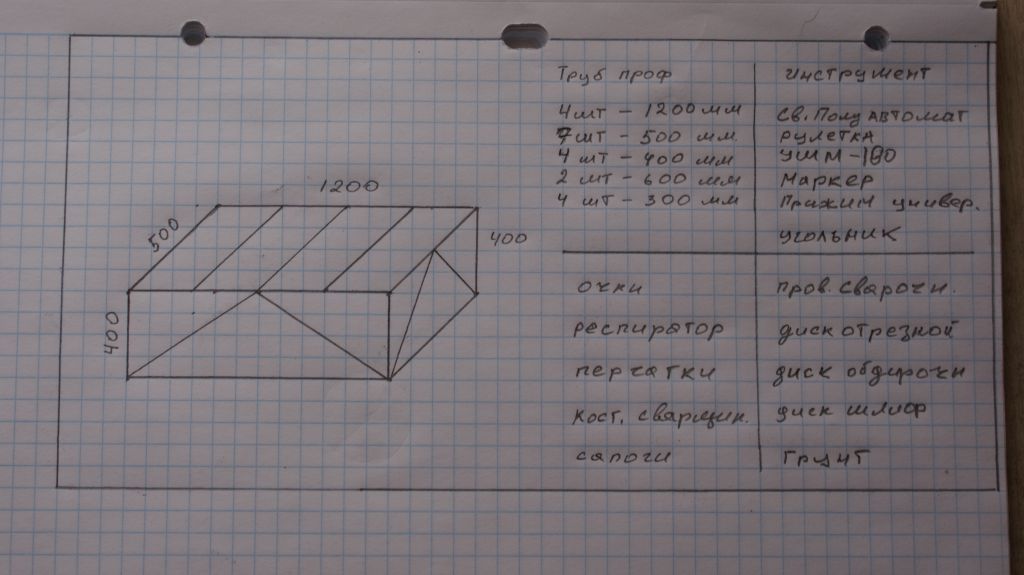 Труб проф
инструмент
4шт - 1200 мм
св. Полуавтомат
7шт - 500 мм.
рулетка
4 шт - 400 мм
УШМ-180
2 шт - 600 мм
маркер
4 шт - 300 мм
Прижим универ.
угольник
1200
500
400
400
очки
пров. сварочн.
респиратор
диск отрезной
перчатки
диск обдирочн
кост. сварщик.
диск шлиф
сапоги
грунт